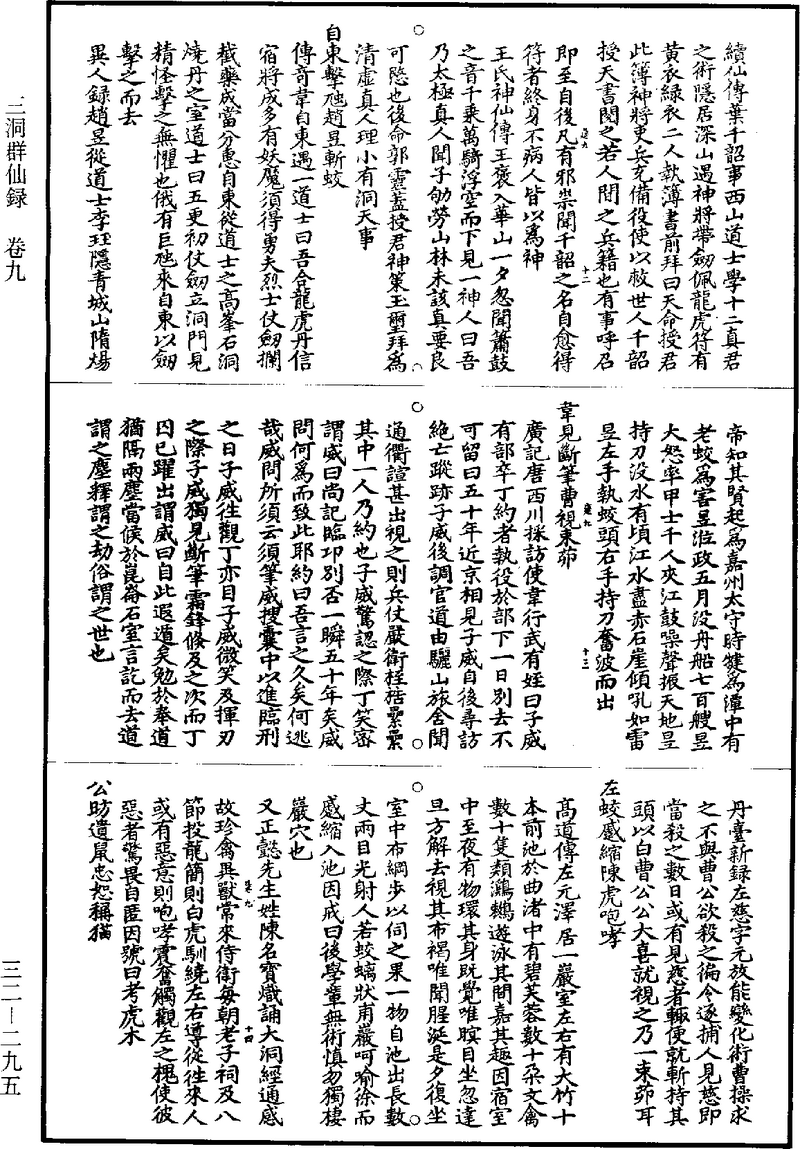 續仙傳葉千韶事西山道士學十二真君
之術隱居深山遇神將帶劒佩龍虎符有
黃衣緑衣二人執簿書前拜曰天命授君
此簿神將吏兵充備役使以救世人千韶
授天書閱之若人間之兵籍也有事呼召
即至自後凡有邪祟聞千韶之名自愈得
符者終身不病人皆以爲神
十二
王氏神仙傳王褒入華山一夕忽聞簫鼓
之音千乗萬騎浮空而下見一神人曰吾
乃太極真人聞子劬勞山林未該真要良
可愍也後命郭靈蓋授君神策玉璽拜爲
清虛真人理小有洞天事
自東擊虵趙昱斬蛟
傳竒韋自東遇一道士曰吾合龍虎丹信
宿將成多有妖魔須得勇夫烈士仗劒攔
截藥成當分惠自東從道士之高峯石洞
燒丹之室道士曰五更初仗劒立洞門見
精怪擊之無懼也俄有巨虵來自東以劒
擊之而去
異人録趙昱從道士李珏隱青城山隋煬
帝知其賢起爲嘉州太守時犍爲潭中有
老蛟爲害昱涖政五月没舟船七百艘昱
大怒率甲士千人夾江鼓噪聲振天地昱
持刀没水有頃江水盡赤石崖傾吼如雷
昱左手執蛟頭右手持刀奮波而出
韋見斷筆曹視束茆
十三
廣記唐西川採訪使韋行武有姪曰子威
有部卒丁約者執役於部下一日別去不
可留曰五十年近京相見子威自後尋訪
絶亡蹤跡子威後調官道由驪山旅舍聞
通衢諠甚出視之則兵仗嚴衛桎梏纍纍
其中一人乃約也子威驚認之際丁笑密
謂威曰尚記臨邛別否一瞬五十年矣威
問何爲而致此耶約曰吾言之久矣何逃
哉威問所須云須筆威搜囊中以進臨刑
之日子威徃觀丁亦目子威微笑及揮刃
之際子威獨見斷筆霜鋒倏及之次而丁
囚已躍出謂威曰自此遐遁矣勉於奉道
猶隔兩塵當候於崑崙石室言訖而去道
謂之塵釋謂之劫俗謂之世也
丹臺新録左慈字元放能變化術曹操求
之不與曹公欲殺之徧令逐捕人見慈即
當殺之數日或有見慈者輙便就斬持其
頭以白曹公公大喜就視之乃一束茆耳
左蛟蹙縮陳虎咆哮
髙道傳左元澤居一巖室左右有大竹十
本前池於曲渚中有碧芙蓉數十朶文禽
數十隻類鸂鶒遊泳其間嘉其趣因宿室
中至夜有物環其身既覺唯瞑目坐忽達
旦方解去視其布褐唯聞腥涎是夕復坐
室中布綱步以伺之果一物自池出長數
丈兩目光射人若蛟螭狀甫巖呵喻徐而
蹙縮入池因戒曰後學輩無術慎勿獨棲
巖穴也
又正懿先生姓陳名寳熾誦大洞經通感
十四
故珍禽異獸常來侍衛每朝老子祠及八
節投龍簡則白虎馴繞左右導從徃來人
或有惡意則咆哮震奮觸觀左之槐使彼
惡者驚畏自匿因號曰考虎木
公昉遺鼠忠恕稱猫
三洞群仙録　卷九
三二—二九五